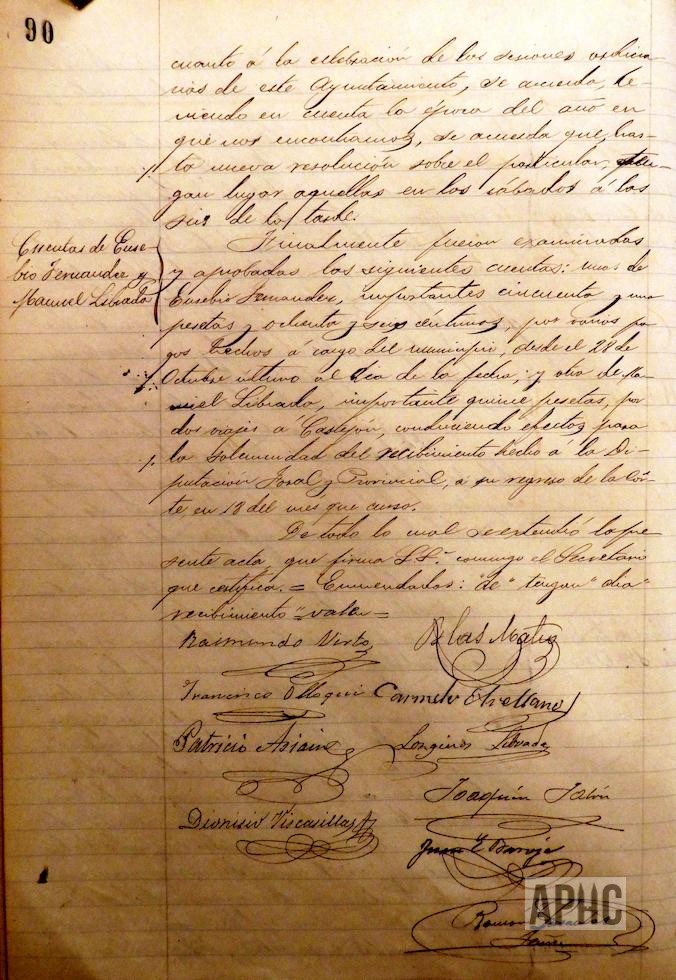 90
cuanto á la celebración de las sesiones ordina-
rias de este Ayuntamiento, se acuerda, te-
niendo en cuenta la época del año en
que nos encontramos, se acuerda que, has-
ta nueva resolución sobre el particular, ten-
gan lugar aquellas en los sábados á las
seis de la tarde.
Cuentas de Euse-
bio Fernandez y
Manuel Librada
Finalmente fueron examinadas
y aprobadas las siguientes cuentas: unas de
Eusebio Fernandez, importantes cincuenta y una
pesetas y ochenta y seis céntimos, por varios pa-
gos hechos á cargo del municipio, desde el 28 de
Octubre último al dia de la fecha; y otra de Ma-
nuel Librada, importante quince pesetas, por
dos viajes a Castejon, conduciendo efectos para
la solemnidad del recibimiento hecho á la Di-
putacion Foral y Provincial, a su regreso de la Cór-
te, en 18 del mes que curso.
De todo lo cual se extendió la pre
sente acta, que firma SS.ª conmigo el Secretario
que certifica. = Enmendados: "de" "tengan" dia"
recibimiento" = valen =
Raimundo Virto
Blas Mateo
Francisco Olloqui
Carmelo Arellano
Patricio Asiain
Longinos Librada
Joaquín
Dionisio Viscasillas
Juan Baroja
Ramon
APHC